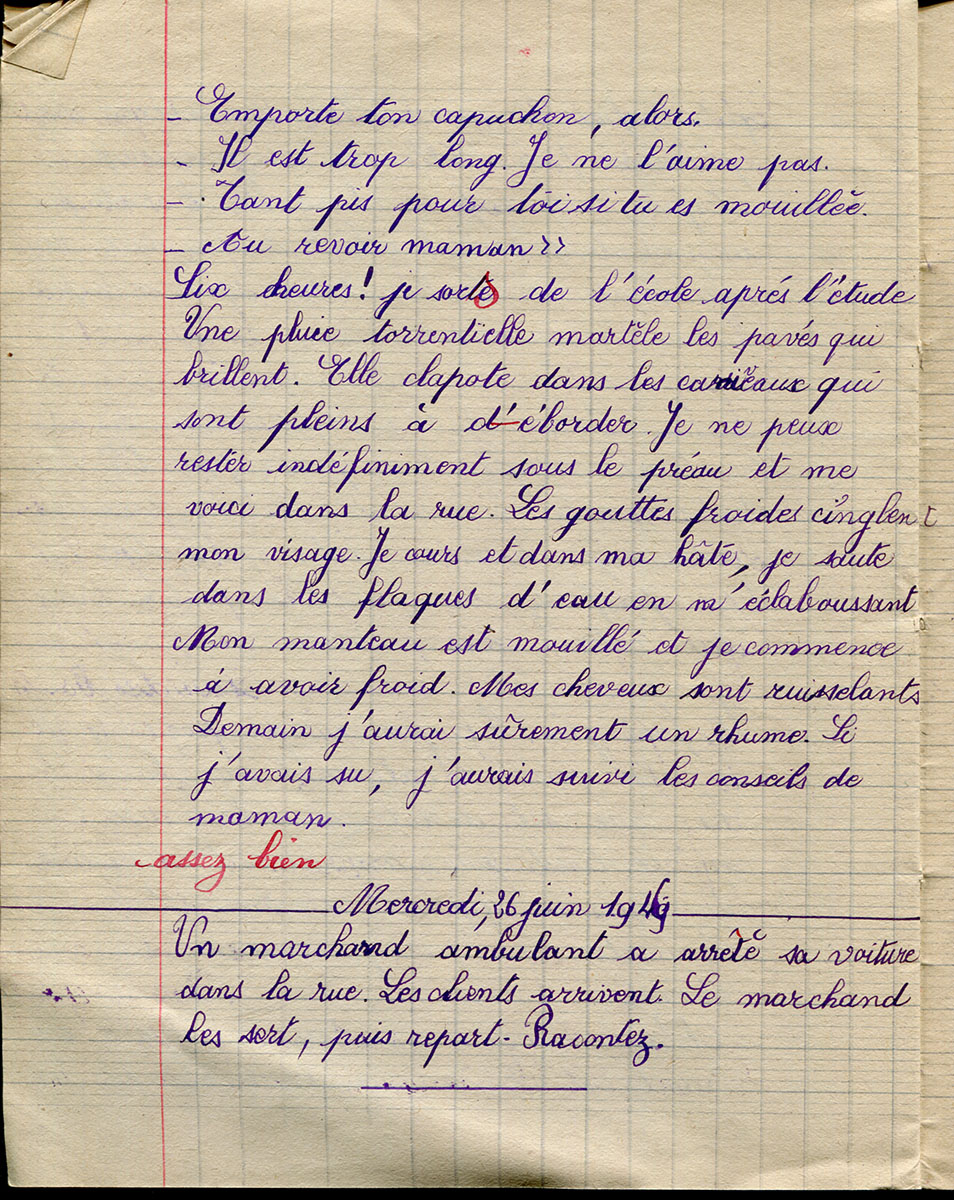 - Emporte ton capuchon, alors.
- Il est trop long. Je ne l'aime pas.
- Tant pis pour toi si tu es mouillée.
- Au revoir maman >>
Six heures! je sors de l'école aprés l'étude
Une pluie torrentielle martèle les pavés qui
brillent. Elle clapote dans les caniveaux qui
sont pleins à d'éborder. Je ne peux
rester indéfiniment sous le préau et me
voici dans la rue. Les gouttes froides cinglent
mon visage. Je cours et dans ma hâte, je saute
dans les flaques d'eau en m'éclaboussant
Mon manteau est mouillé et je commence
à avoir froid. Mes cheveux sont ruisselants
Demain j'aurai sûrement un rhume. Si
j'avais su, j'aurais suivi les conseils de
maman.
assez bien
Mercredi, 26 juin
Un marchand ambulant a arrêté sa voiture
dans la rue. Les clients arrivent. Le marchand
les sert, puis repart - Racontez.